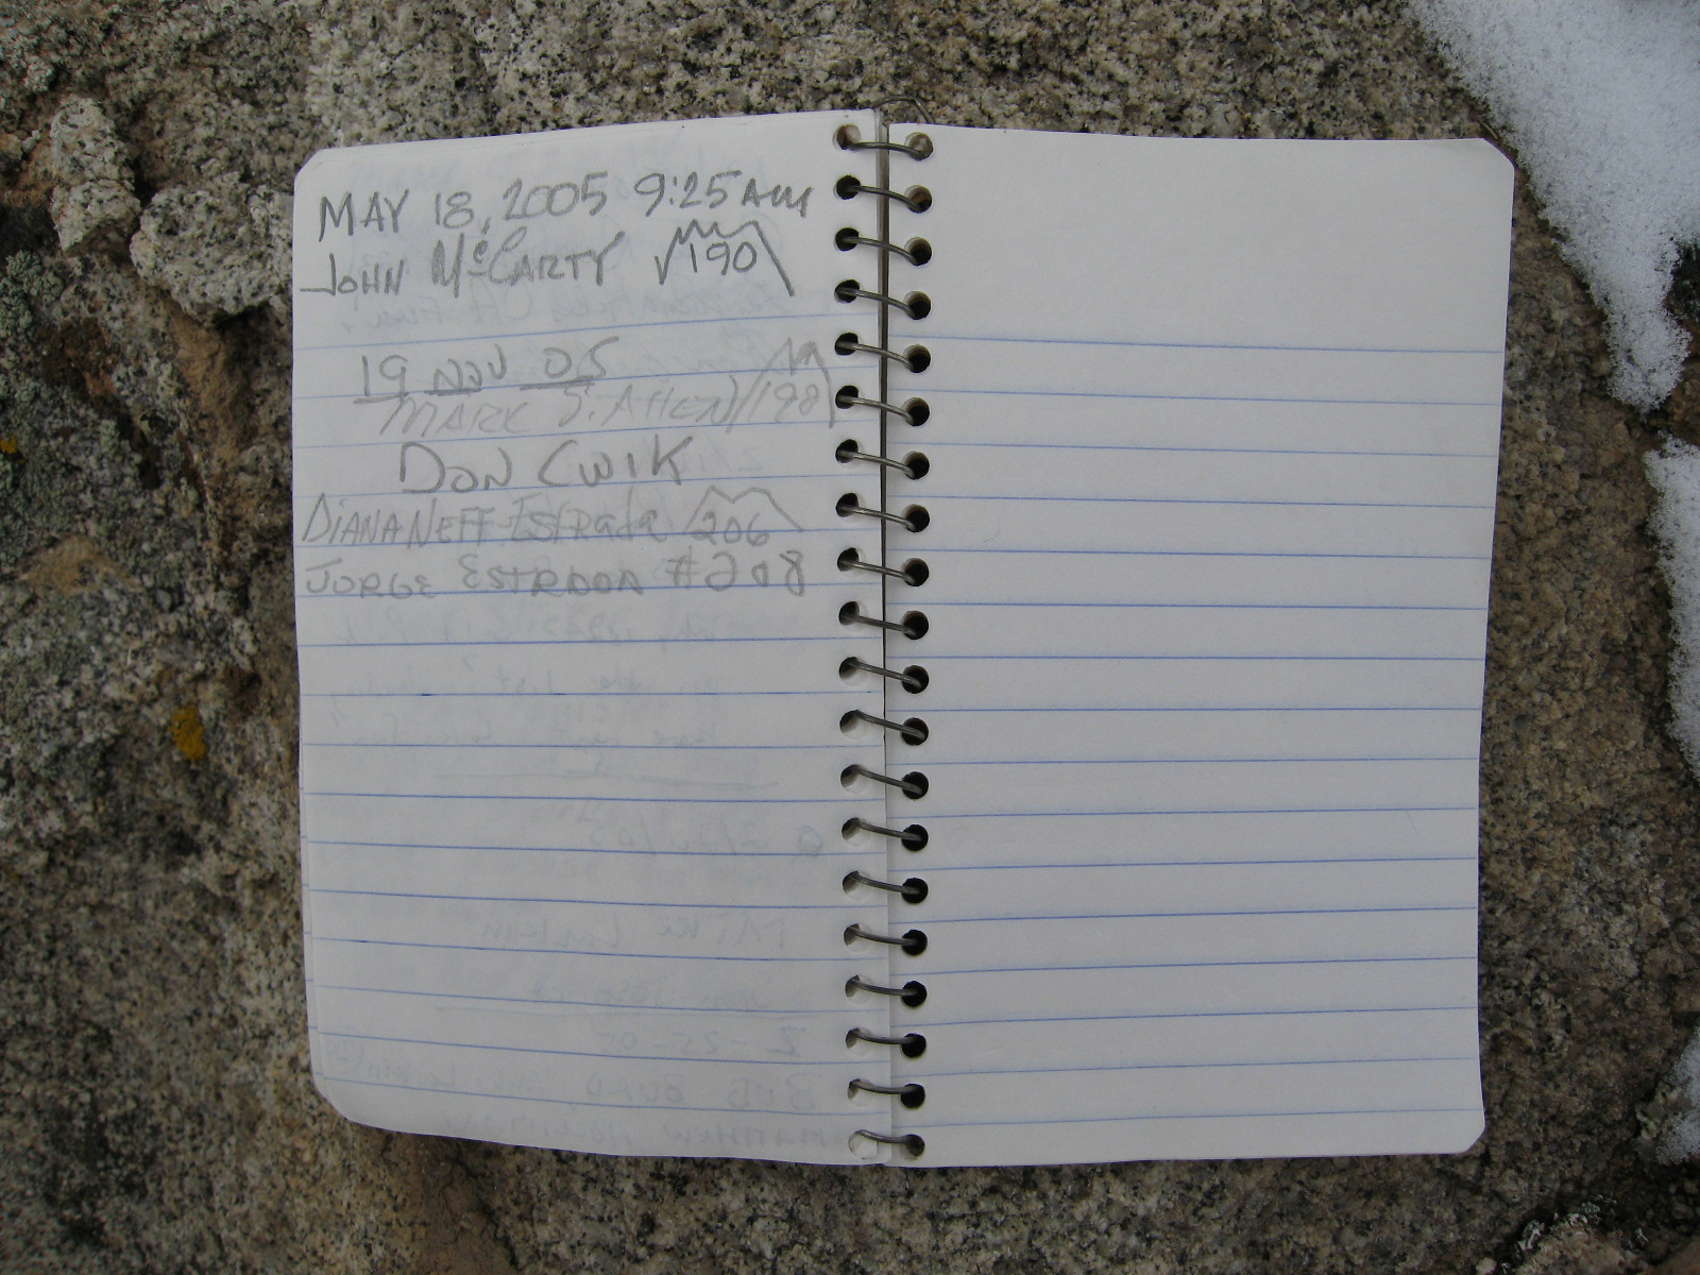 MAY 18, 2005 9:25 AM
JOHN McCARTY 190
19 NOV 05
MARK S. Allen 198
DON CWIK
DIANA NEFF-ESTRADA 206
JORGE ESTRADA #608